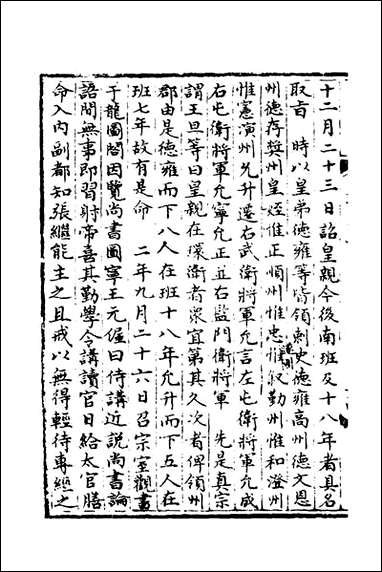 十二月二十三日詔皇親今後南班及十八年者具名
取旨　時以皇弟德雍等皆領刺史德雍高州德文恩
州德存奬州皇姪惟正順州惟忠惟叙勤州惟和澄州
惟憲演州允升遷右武衛將軍允言左屯衛將軍允成
右屯衛將軍允寧允正並右監門衛將軍　先是真宗
謂王旦等曰皇親在環衛者衆宜第其久次者俾領州
郡由是德雍而下八人在班十八年允升而下五人在
班七年故有是命　二年九月二十六日召宗室觀書
于龍圖閣因覽尚書圖寧王元偓曰侍講近說尚書論
語閒無事即習射帝喜其勤學令講讀官日給太官膳
命入内副都知張繼能主之且戒以無得輕待專經之